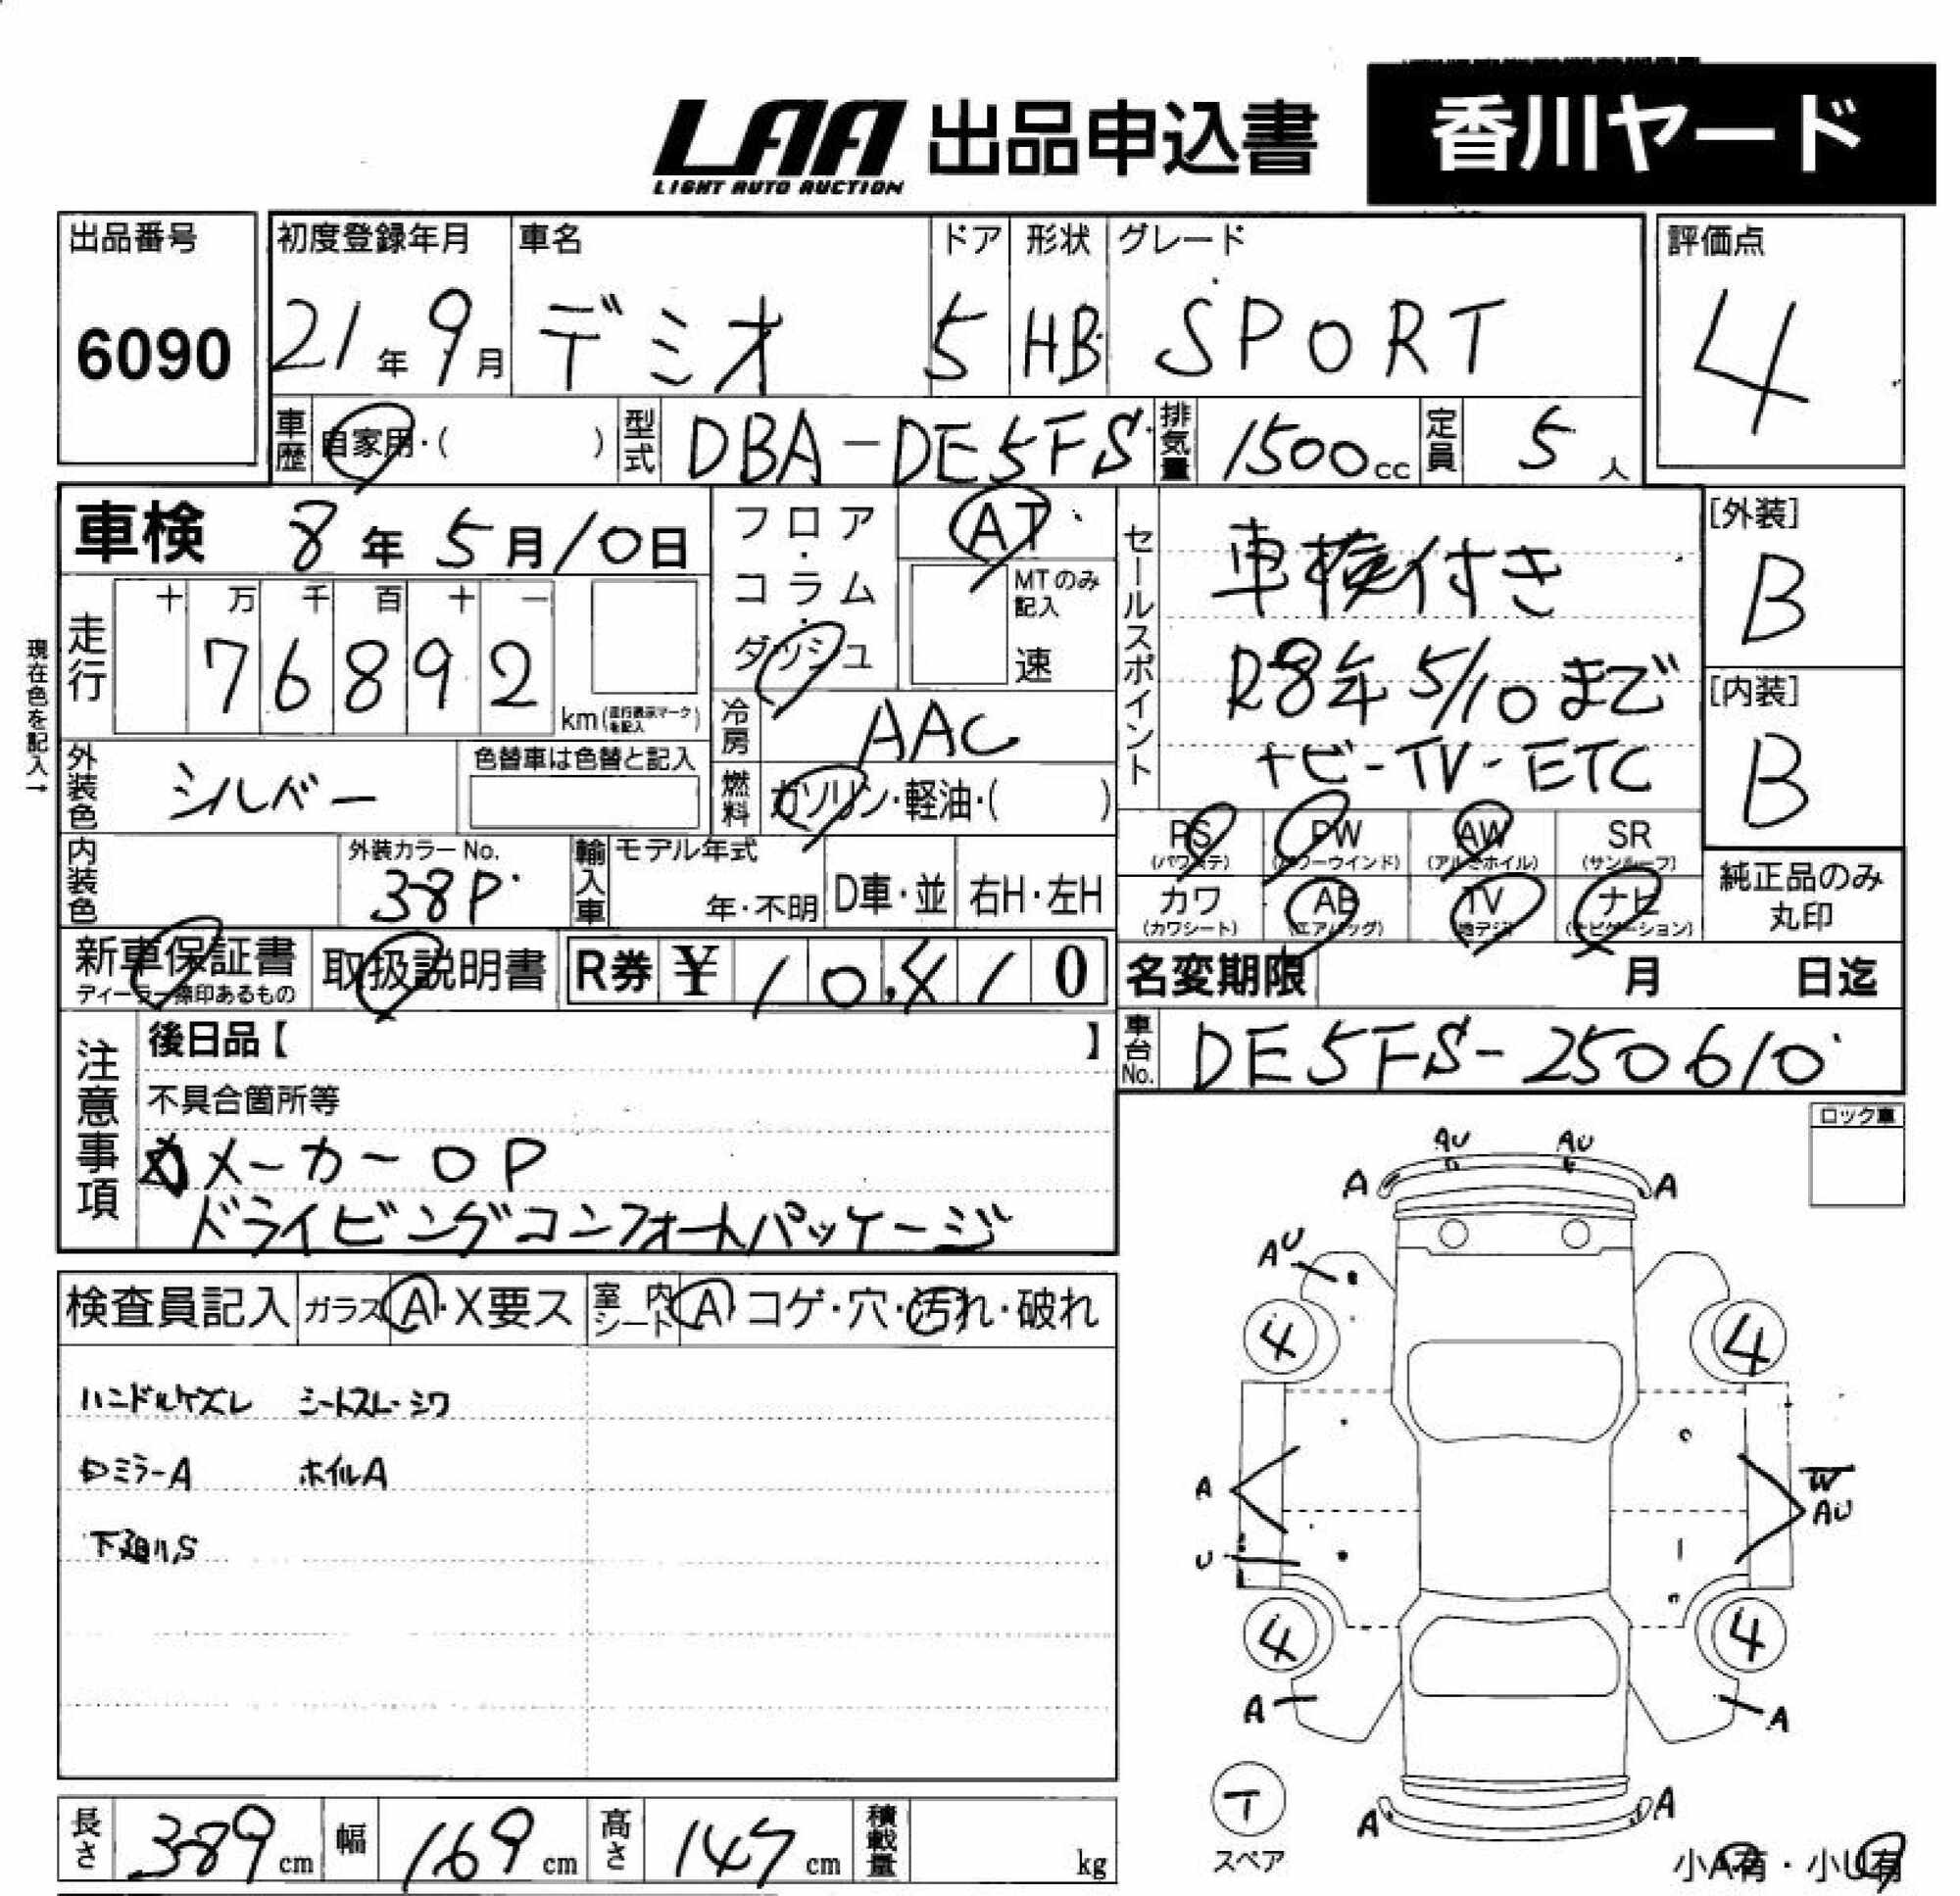 LAA 出品申込書 香川ヤード
LIGHT AUTO AUCTION
出品番号 初度登録年月 車名 ドア 形状 グレード 評価点
6090 21年9月 デミオ 5 HB SPORT 4
車歴 自家用・( ) 型式 DBA-DE5FS 排気量 1500cc 定員 5人
車検 8年5月10日
フロア・コラム・ダッシュ AT
MTのみ記入
速
セールスポイント
車検付き
R8年5/10まで
ナビ-TV-ETC
[外装]
B
[内装]
B
現在色を記入→
走行 十 万 千 百 十 一
76892 km
冷房 AAC
外装色 シルバー 色替車は色替と記入
燃料 ガソリン・軽油・( )
PS PW AW SR
(パワステ) (パワーウインド) (アルミホイル) (サンルーフ)
内装色 外装カラーNo. 38P 輸入車 モデル年式 年・不明 D車・並 右H・左H
カワ AB TV ナビ
(カワシート) (エアバッグ) (地デジ) (ナビゲーション)
純正品のみ
丸印
新車保証書 取扱説明書 R券 ¥10,410
ディーラー捺印あるもの
名変期限 月 日迄
車台No. DE5FS-250610
注意事項
後日品【 】
不具合箇所等
メーカーOP
ドライビングコンフォートパッケージ
ロック車
検査員記入 ガラス A・X要ス 室内シート A コゲ・穴・汚れ・破れ
ハンドルケズレ シートスレ・シワ
ミラーA ホイルA
下廻りS
AU AU
A A
AU
4 4
A W
AU
U
4 4
A A
T
スペア
A A
小A有・小U有
長さ 389cm 幅 169cm 高さ 147cm 積載量 kg